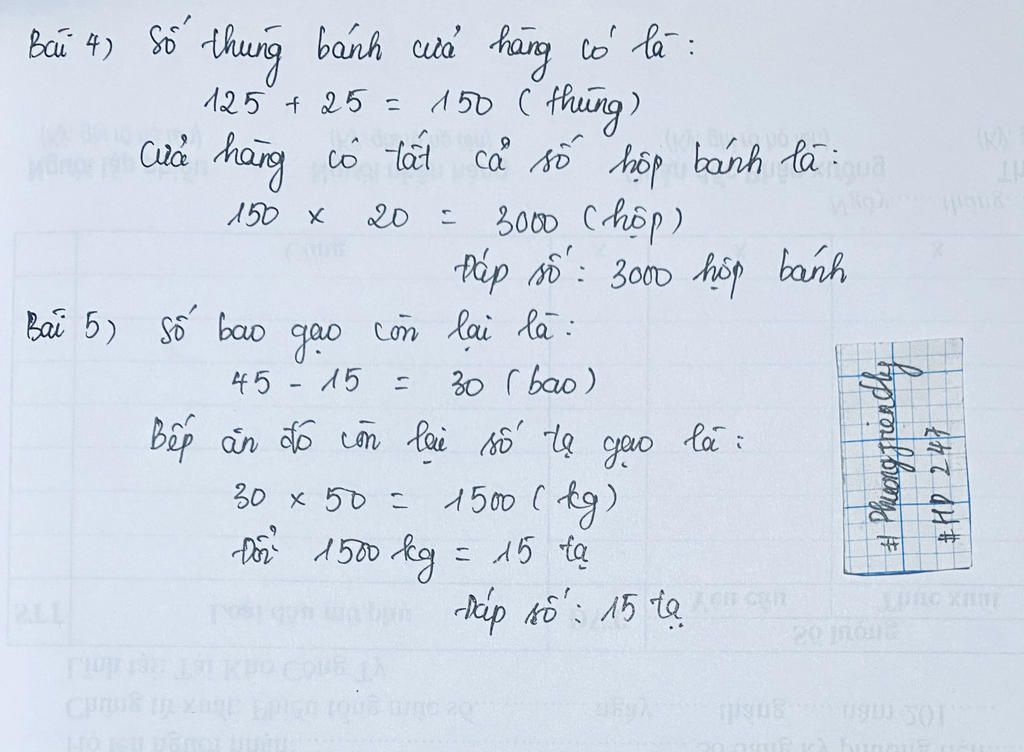 Bài 4) Số thùng bánh cửa hàng có là:
125 + 25 = 150 (thùng)
Cửa hàng có tất cả số hộp bánh là:
150 x 20 = 3000 (hộp)
Đáp số: 3000 hộp bánh
Bài 5) Số bao gạo còn lại là:
45 - 15 = 30 (bao)
Bếp ăn đó còn lại số tạ gạo là:
30 x 50 = 1500 (kg)
Đổi 1500 kg = 15 tạ
Đáp số: 15 tạ
# Phuongtriendly
# HD 247